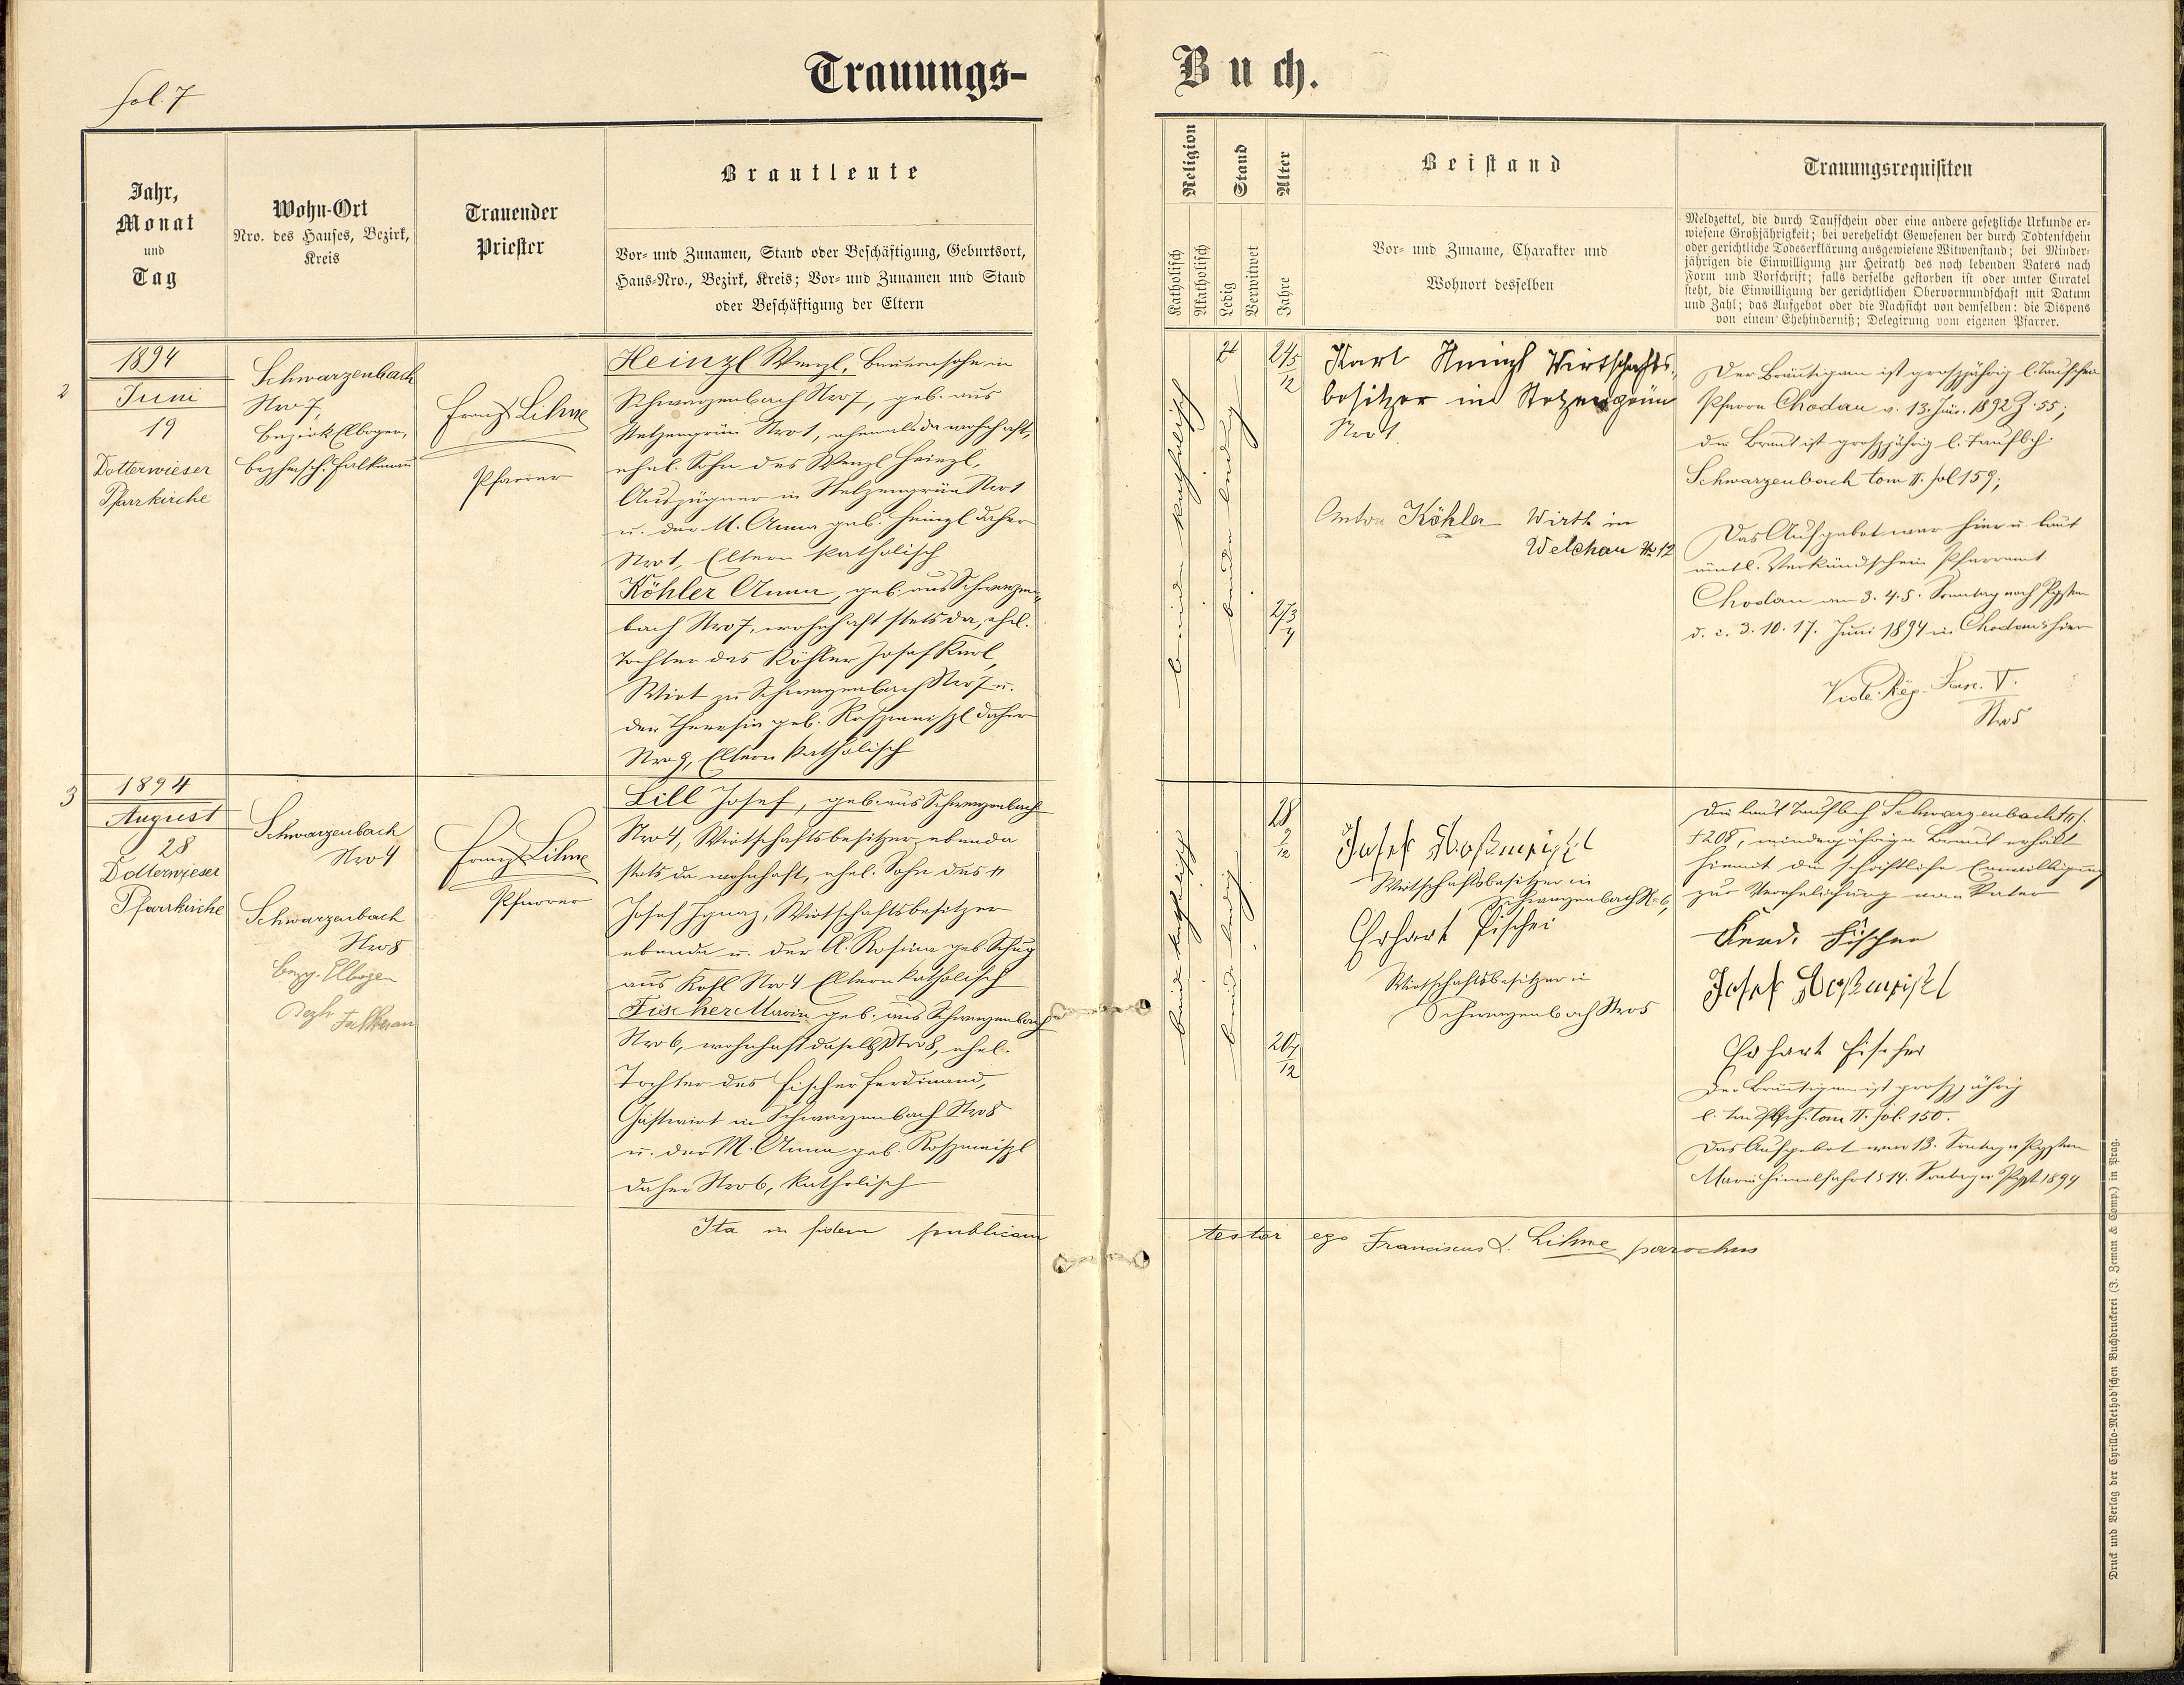 fol. 7
Trauungs-
Buch.
Jahr,
Monat
und
Tag
Wohn-Ort
Nro. des Hauses, Bezirk,
Kreis
Trauender
Priester
Brautleute
Vor- und Zunamen, Stand oder Beschäftigung, Geburtsort,
Haus-Nro., Bezirk, Kreis; Vor- und Zunamen und Stand
oder Beschäftigung der Eltern
Religion
Katholisch
Akatholisch
Stand
Ledig
Verwitwet
Alter
Jahre
Beistand
Vor- und Zuname, Charakter und
Wohnort desselben
Trauungsrequisiten
Meldzettel, die durch Taufschein oder eine andere gesetzliche Urkunde er-
wiesene Großjährigkeit; bei verehelicht Gewesenen der durch Todtenschein
oder gerichtliche Todeserklärung ausgewiesene Witwenstand; bei Minder-
jährigen die Einwilligung zur Heirath des noch lebenden Vaters nach
Form und Vorschrift; falls derselbe gestorben ist oder unter Curatel
steht, die Einwilligung der gerichtlichen Obervormundschaft mit Datum
und Zahl; das Aufgebot oder die Nachsicht von demselben: die Dispens
von einem Ehehinderniß; Delegirung vom eigenen Pfarrer.
2
1894
Juni
19
Dotterwieser
Pfarrkirche
Schwarzenbach
Nro 7,
Bezirk Elbogen,
Bezhmsch. Falkenau
Franz Lihne
Pfarrer
Heinzl Wenzl, Bauernsohn in
Schwarzenbach Nro 7, geb. aus
Stelzengrün Nro 1, ehemals da wohnhaft,
ehel. Sohn des Wenzl Heinzl,
Auszügner in Stelzengrün Nro 1
u. der M. Anna geb. Heinzl daher
Nro 1, Eltern katholisch
Köhler Anna, geb. aus Schwarzen-
bach Nro 7, wohnhaft stets da, ehel.
Tochter des Köhler Josef Karl,
Wirt zu Schwarzenbach Nro 7 u.
der Theresia geb. Roszmeiszl daher
Nro 9, Eltern katholisch
beide katholisch
beide ledig
24 5/12
27 3/4
Karl Wirtschafts-
besitzer in Stelzengrün
Nro 1.
Anton Köhler Wirth in
Welchau № 12
Der Bräutigam ist groszjährig l. Taufschein
Pfarre Chodau v. 13. Jän. 1892 Z. 55;
die Braut ist groszjährig l. Taufbch.
Schwarzenbach tom II. fol 159;
Das Aufgebot war hier u. laut
amtl. Verkündschein Pfarramt
Chodau am 3. 4. 5. Sonntag nach Pfgsten
d. i. 3. 10. 17. Juni 1894 in Chodau u hier
Vide Reg. Fasc. V.
Nro 5
3
1894
August
28
Dotterwieser
Pfarrkirche
Schwarzenbach
Nro 4
Schwarzenbach
Nro 8
bezg. Elbogen
Bezh Falkenau
Franz Lihne
Pfarrer
Lill Josef, geb. aus Schwarzenbach
Nro 4, Wirtschaftsbesitzer ebenda
stets da wohnhaft, ehel. Sohn des
Josef Ignaz, Wirtschaftsbesitzer
ebenda u. der A. Rosina geb Schug
aus Kohl Nro 4 Eltern katholisch
Fischer Maria geb. aus Schwarzenbach
Nro 6, wohnhaft daselbst Nro 8, ehel.
Tochter des Fischer Ferdinand,
Gastwirt in Schwarzenbach Nro 8
u. der M. Anna geb. Roszmeiszl
daher Nro 6, katholisch
beide katholisch
beide ledig
28 2/12
20 4/12
Josef Roßmeißl
Wirtschaftsbesitzer in
Schwarzenbach N= 6,
Erhart Fischer
Wirtschaftsbesitzer in
Schwarzenbach Nro 5
Die laut Taufbch Schwarzenbach
f 208, minderjährige Braut erhält
hiemit die schriftliche Einwilligung
zur Verehelichung vom Vater
Ferd. Fischer
Josef Roßmeißl
Erhart Fischer
Der Bräutigam ist groszjährig
l. Tfbch. tom II. fol. 150.
Das Aufgebot war 13. Sontag n Pfgsten
Mariä Himelfahrt u 14. Sontag n Pfgst 1894
Ita in fidem publicam
testor ego Franciscus X. Lihne parochus
Druck und Verlag der Cyrillo-Method'schen Buchdruckerei (J. Zeman & Comp.) in Prag.